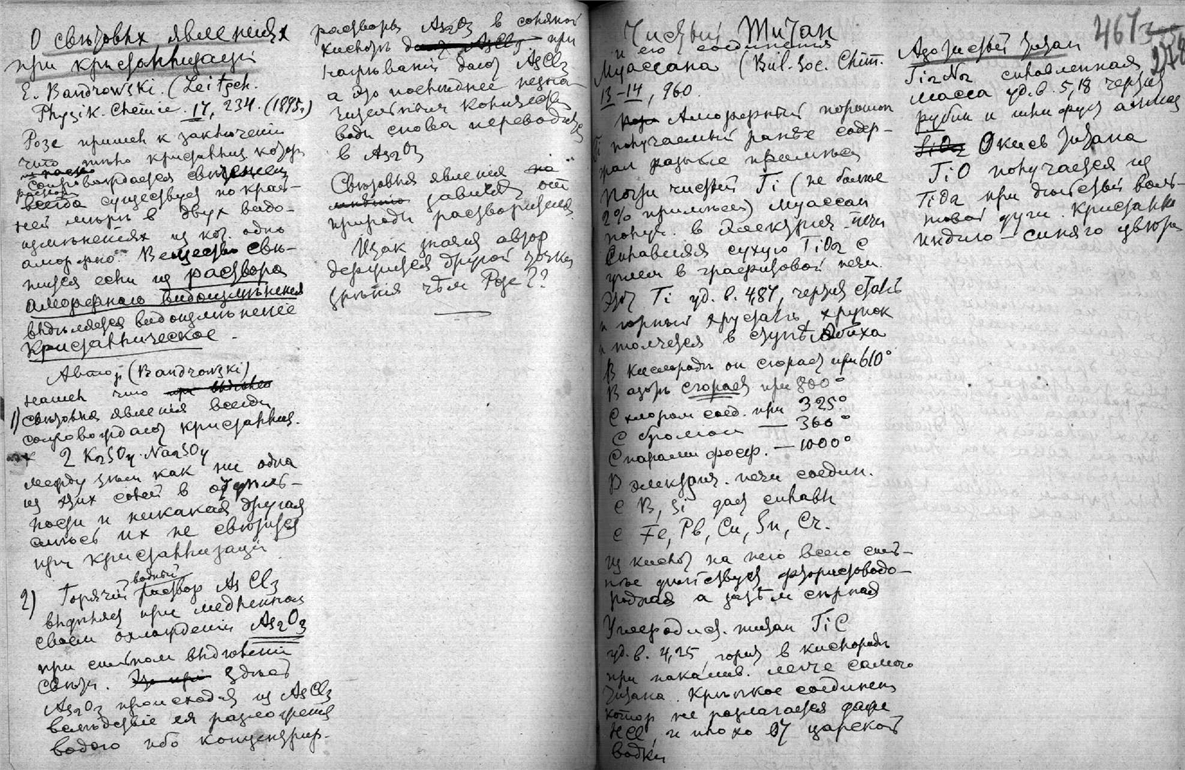 О свѣтовых явленіях
при кристаллизаціи
E. Bandrowski. (Zeitsch.
Physik. Chemie. 17, 234. (1895.)
Розе пришел к заключенію
что только кристаллиз. котор.
сопровождается свѣченіем
всегда существует по край-
ней мѣрѣ в двух видо-
измѣненіях из ког. одно
аморфно. Вещество свѣ-
тится если из раствора
аморфнаго видоизмѣненія
выдѣляется видоизмѣненіе
Кристаллическое.
Автор (Bandrowski)
нашел что
1) свѣтовыя явленія всегда
сопровождают кристаллиз.
2 K2SO4 . Na2SO4
между тѣм как ни одна
из этих солей в отдѣль-
ности и никакая другая
смѣсь их не свѣтится
при кристаллизаціи
2) Горячій водный раствор AsCl3
выдѣляет при медленном
своем охлажденіи As2O3
при сильном выдѣленіи
свѣта. Здѣсь
As2O3 происходит из AsCl3
вслѣдствіе ея разложенія
водою ибо концентрир.
растворы As2O3 в соляной
кислотѣ при
нагрѣваніи дают AsCl3
а это послѣднее незна-
чительным количеств.
воды снова переводится
в As2O3
Свѣтовыя явленія не
зависят от
природы растворителя.
Итак автор
держится другой точки
зрѣнія чѣм Розе??
467
278
Чистый Титан
и его соединения
Муассана (Bul. Soc. Chim.
13-14, 960.
Аморфный порошок
получаемый ранѣе содер-
жал разные примѣси
Почти чистый Ti (не болѣе
2% примѣсей) Муассан
получ. в электрич. печи
сплавляя сухую TiO2 с
углем в графитовой печи.
Этот Ti уд. в. 4,87, чертит сталь
и горный хрусталь, хрупок
и толчется в ступкѣ Абиха
В кислородѣ он сгорает при 610°
В азотѣ сгорает при 800°
С хлором соед. при 325°
С бромом — 360°
С парами фосф. — 1000°
В электрич. печи соедин.
с B, Si дает сплавы
с Fe, Pb, Cu, Sn, Cr.
из кислот на него всего силь-
нѣе дѣйствует фтористоводо-
родная а затѣм сѣрная
Углеродист. титан TiC
уд. в. 4,25 горит в кислородѣ
при накалив. легче самого
титана. Крѣпкое соединен.
котор. не разлагается даже
HCl, и плохо от царской
водки
Азотистый титан
Ti2N2 сплавленная
масса уд. в. 5,18 чертит
рубин и шлифует алмаз
Окись титана
TiO получается из
TiO2 при дѣйствіи воль-
товой дуги. Кристаллы
индиго-синяго цвѣта